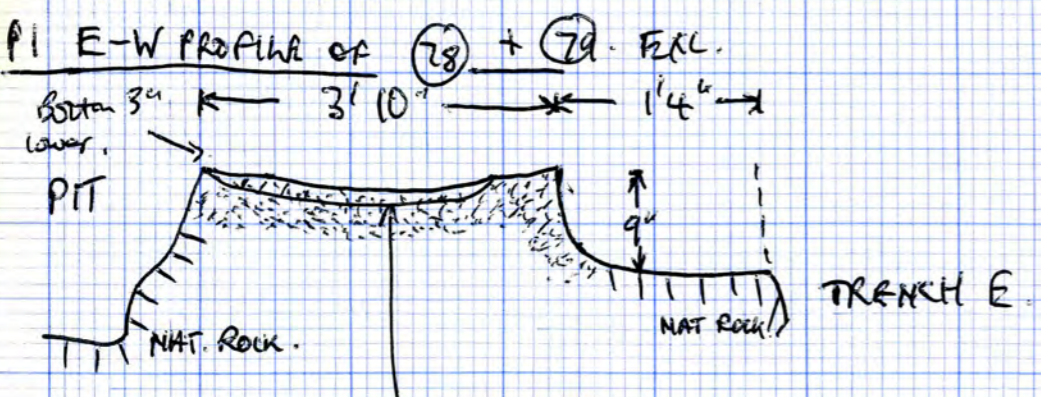 P1 E-W PROFILE OF 28 + 29. EXC.
Bottom 3" 3' 10" 1' 4"
lower.
PIT
9"
TRENCH E.
NAT. ROCK. NAT ROCK